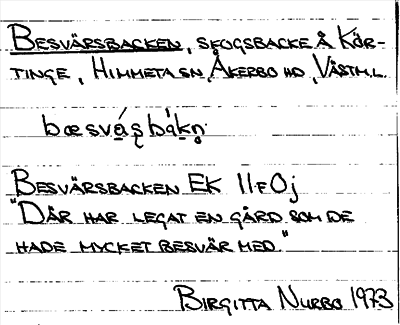 BESVÄRSBACKEN, SKOGSBACKE Å KÖR-
TINGE, HIMMETA SN, ÅKERBO HD, VÄSTM.L.
BESVÄRSBACKEN EK 11F0j
"DÄR HAR LEGAT EN GÅRD SOM DE
HADE MYCKET BESVÄR MED."
BIRGITTA NURBO 1973